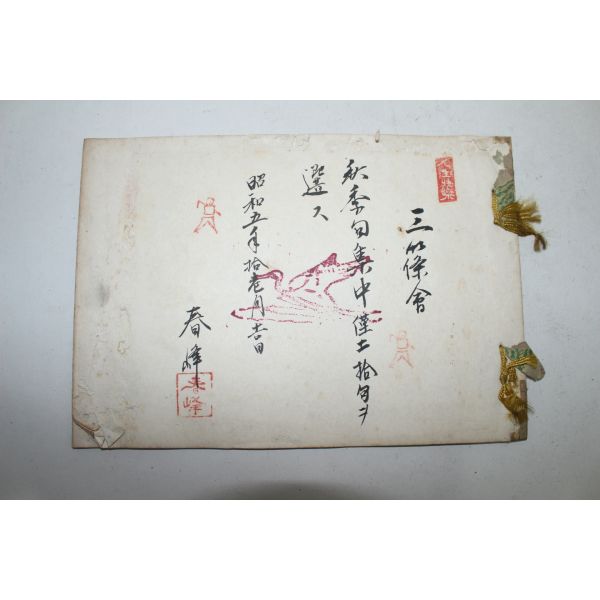 三條會
秋季句集中僅二拾句ヲ
選ス
昭和五年拾壱月十一日
春峰
春峰